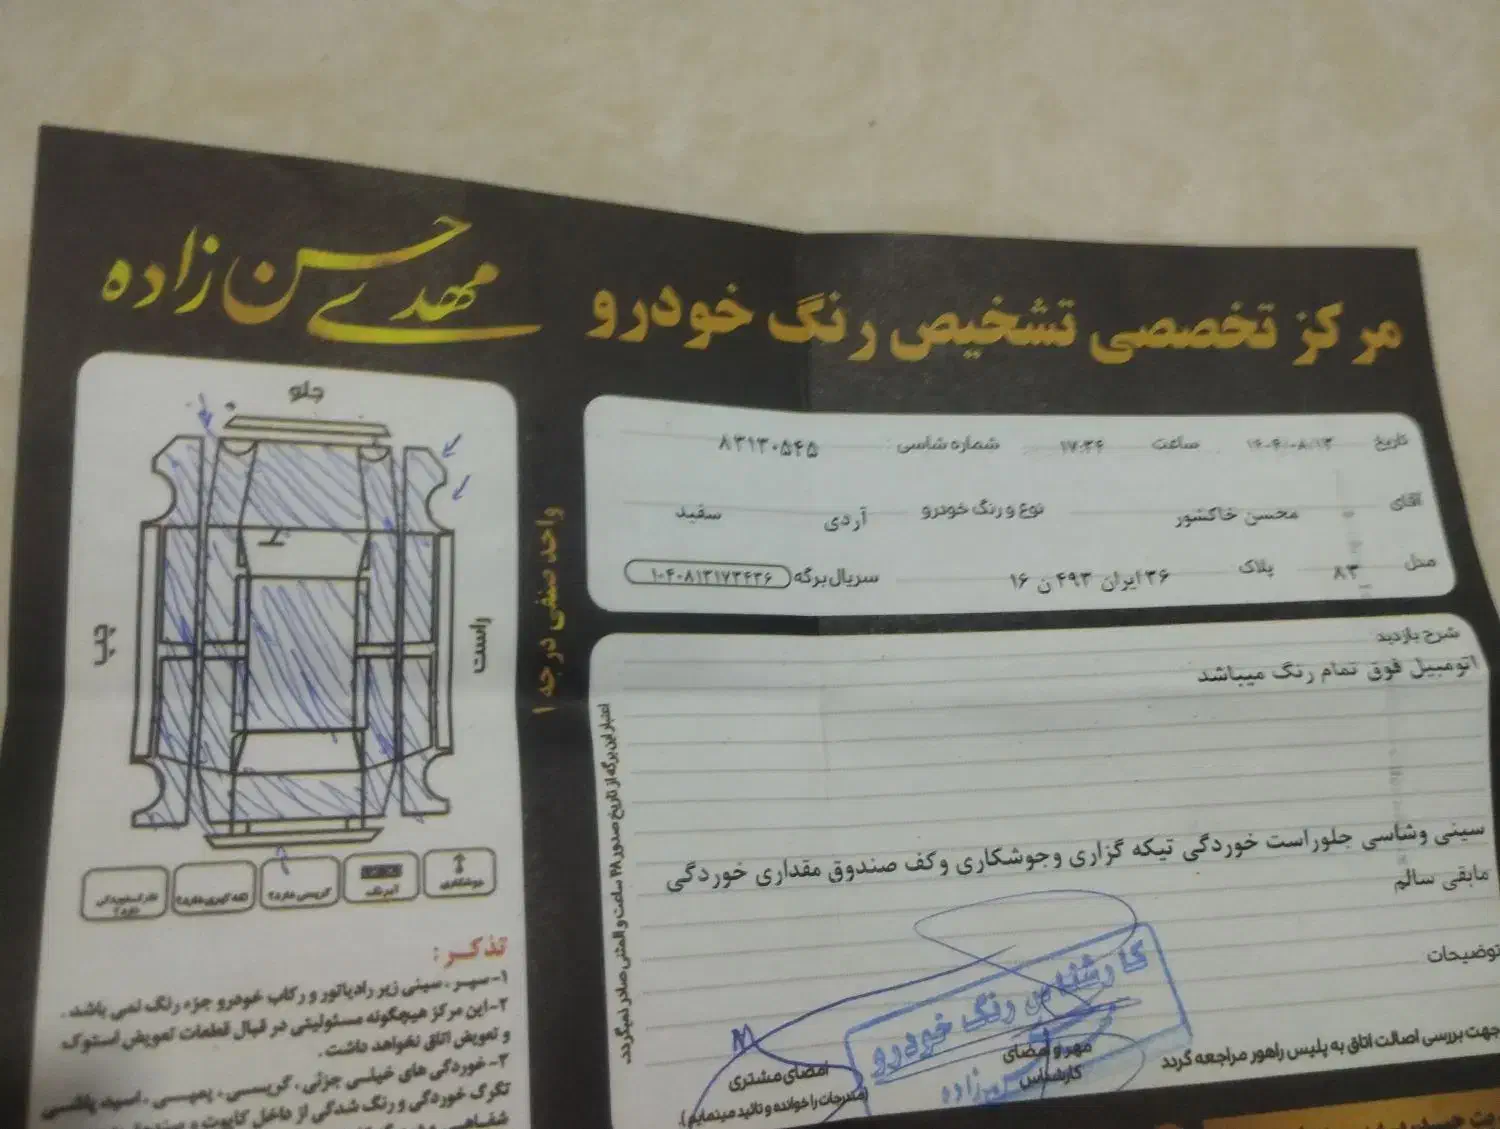 مرکز تخصصی تشخیص رنگ خودرو
مهدی حسن زاده
تاریخ ۱۴۰۴/۰۸/۱۳ ساعت ۱۷:۳۴ شماره شاسی: ۸۳۱۳۰۵۴۵
آقای محسن خاکشور نوع و رنگ خودرو آردی سفید
مدل ۸۳ پلاک ۳۶ ایران ۴۹۳ ن ۱۶ سریال برگه ۱۰۴۰۸۱۳۱۷۳۴۳۶
شرح بازدید
اتومبیل فوق تمام رنگ میباشد
سینی وشاسی جلوراست خوردگی تیکه گزاری وجوشکاری وکف صندوق مقداری خوردگی
مابقی سالم
توضیحات
جهت بررسی اصالت اتاق به پلیس راهور مراجعه گردد
مهر و امضای
کارشناس
کارشناس رنگ خودرو
حسن زاده
امضای مشتری
(مندرجات را خوانده و تائید مینمایم).
اعتبار این برگه از تاریخ صدور ۴۸ ساعت و المثنی صادر نمیگردد.
واحد صنفی درجه ۱
جلو
چپ
راست
جوشکاری
آبرنگ
گریسی ندارد؟
لکه گیری ندارد؟
تذکر:
۱-سپر، سینی زیر رادیاتور و رکاب خودرو جزء رنگ نمی باشد.
۲-این مرکز هیچگونه مسئولیتی در قبال قطعات تعویض استوک
و تعویض اتاق نخواهد داشت.
۳-خوردگی های خیلی جزئی، گریسی، پمپی، اسید پاشی
تگرگ خوردگی و رنگ شدگی از داخل کاپوت و